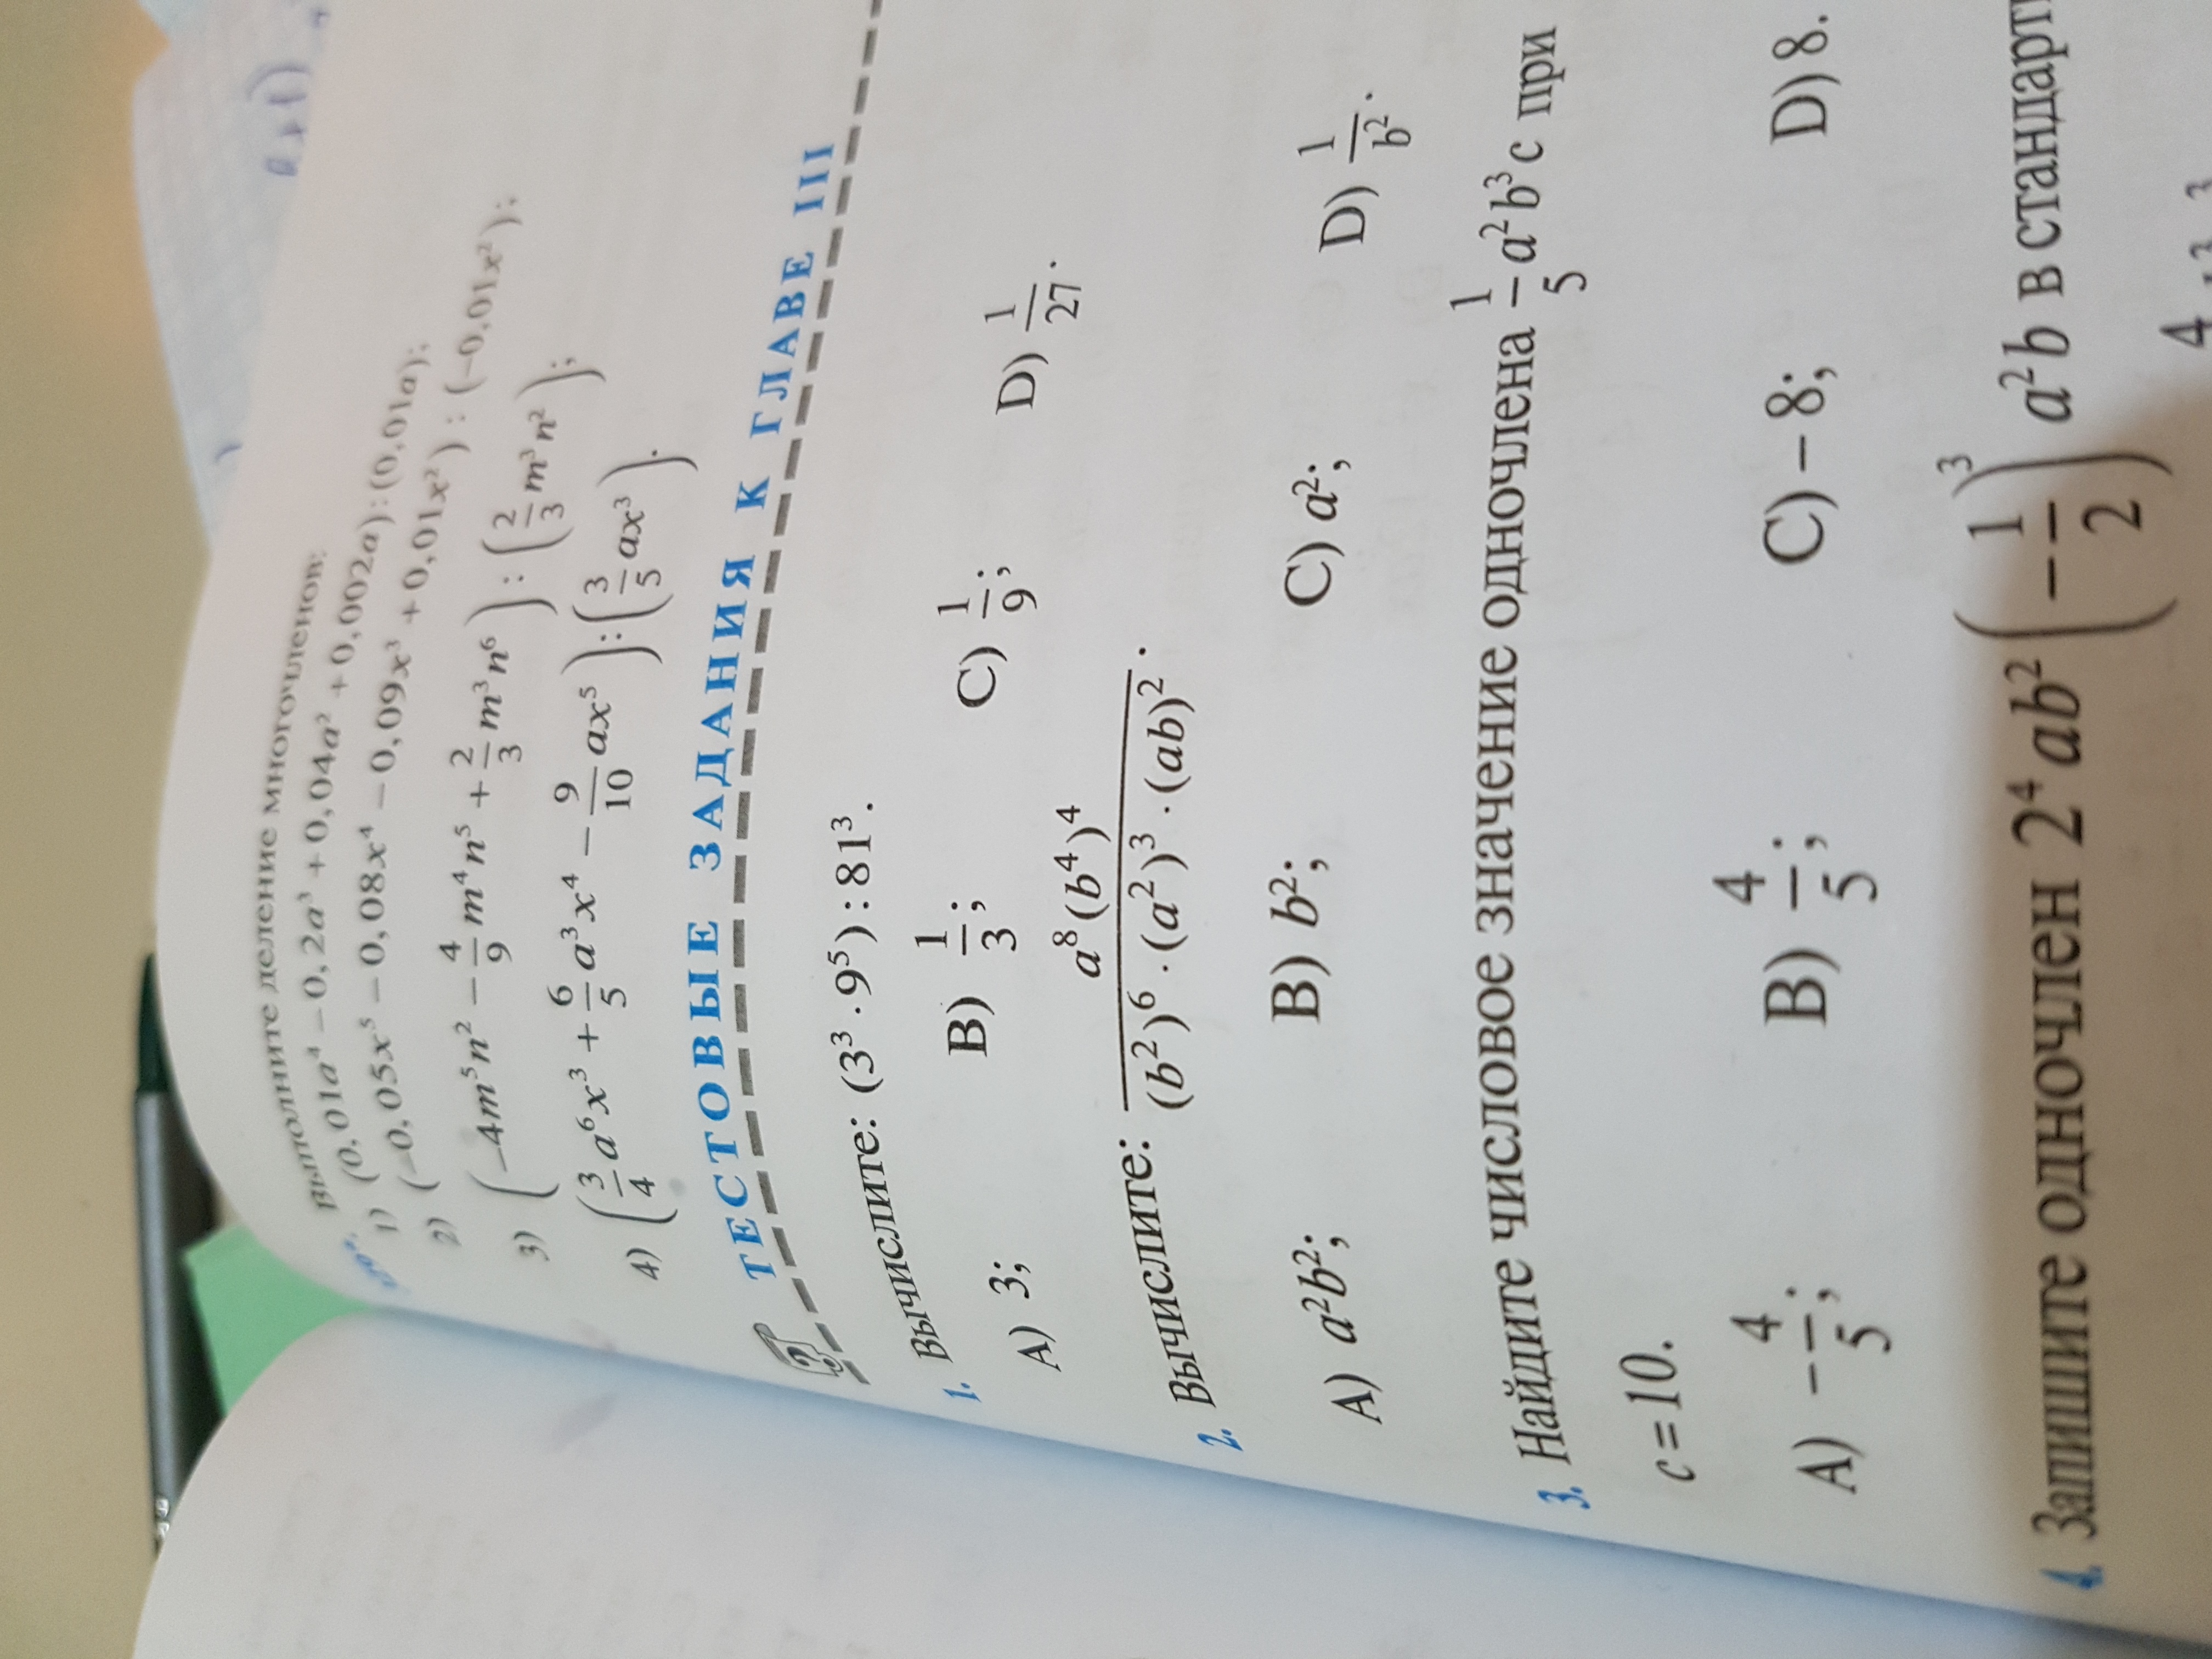 Выполните деление многочленов:
1) (0,01a⁴ – 0,2a³ + 0,04a² + 0,002a) : (0,01a);
2) (–0,05x⁵ – 0,08x⁴ – 0,09x³ + 0,01x²) : (–0,01x²);
3) (–4m⁵n² – 4/9 m⁴n⁵ + 2/3 m³n⁶) : (2/3 m³n²);
4) (3/4 a⁶x³ + 6/5 a³x⁴ – 9/10 ax⁵) : (3/5 ax³).
ТЕСТОВЫЕ ЗАДАНИЯ К ГЛАВЕ III
1. Вычислите: (3³ · 9⁵) : 81³.
A) 3; B) 1/3; C) 1/9; D) 1/27.
2. Вычислите: a⁸(b⁴)⁴ / (b²)⁶ · (a²)³ · (ab)².
A) a²b²; B) b²; C) a²; D) 1/b².
3. Найдите числовое значение одночлена 1/5 a²b³c при
c = 10.
A) –4/5; B) 4/5; C) –8; D) 8.
4. Запишите одночлен 2⁴ab²(–1/2)³a²b в